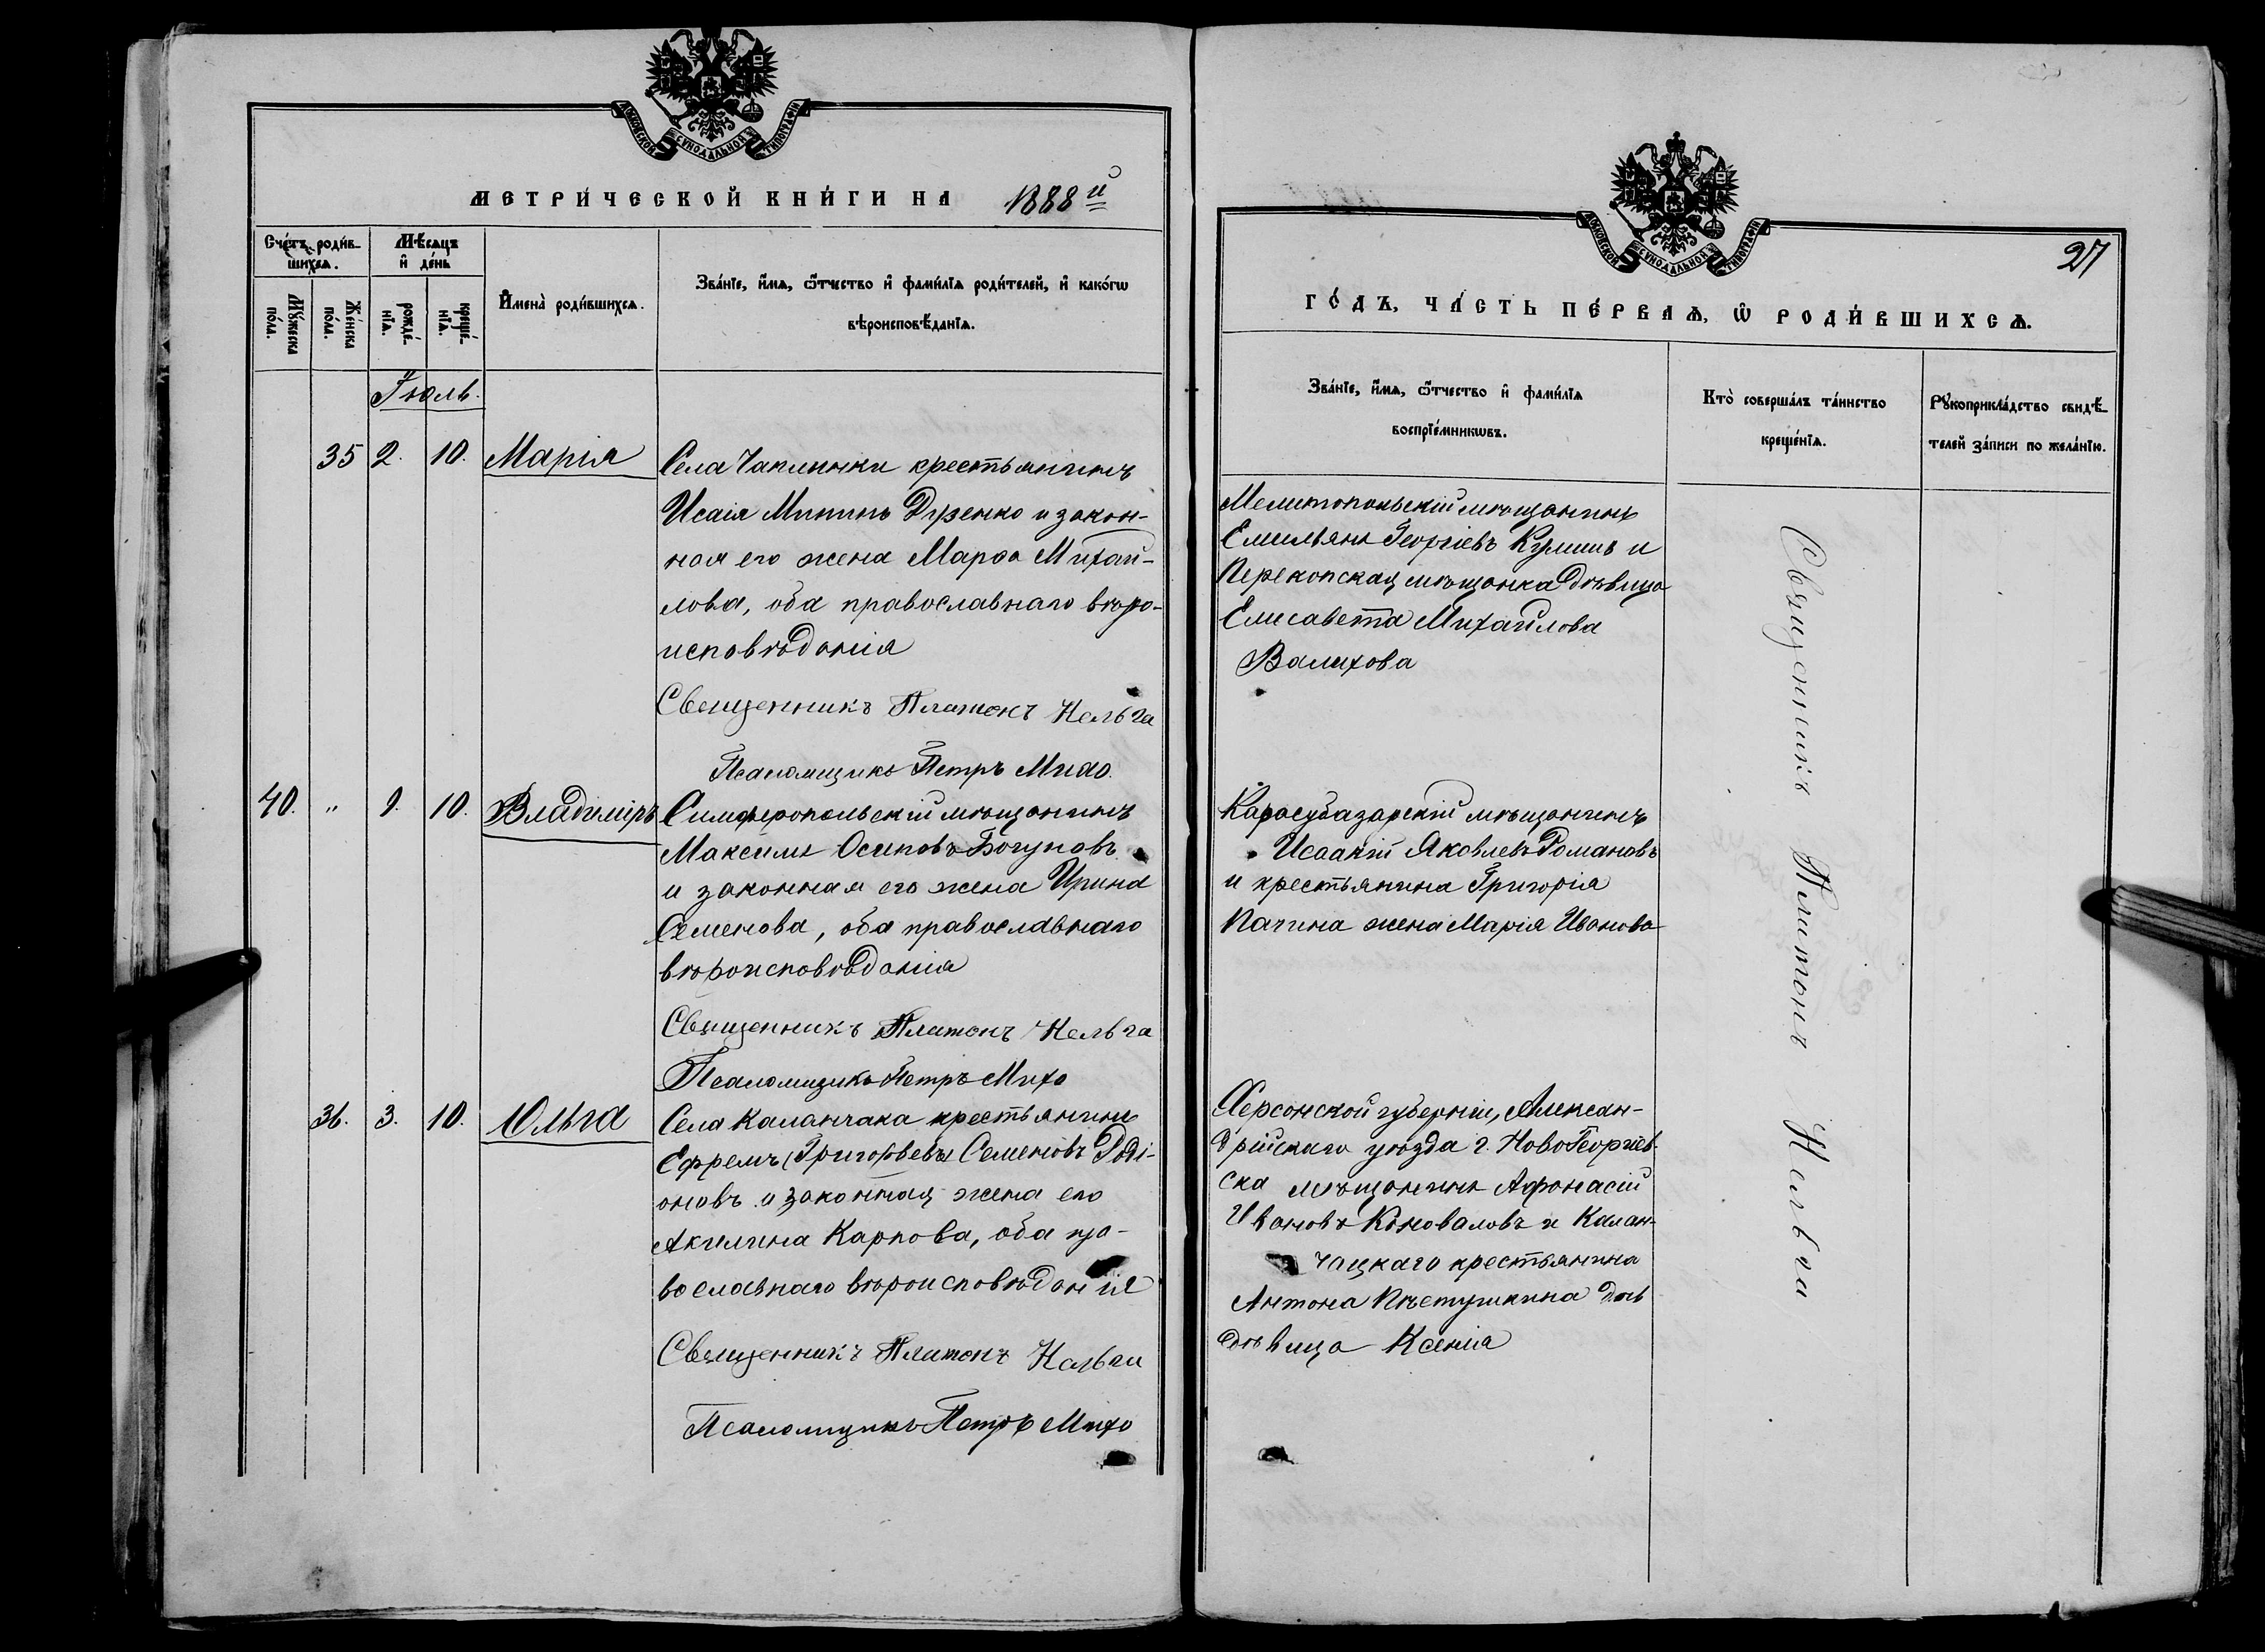 МОСКОВСКОЙ СѴНОДАЛЬНОЙ ТИПОГРАФІИ
МЕТРИ́ЧЕСКОЙ КНИ́ГИ НА 1888й
Сче́тъ роди́вшихсѧ.
Мѣ́сяцъ и҆ де́нь
Мꙋ́жеска по́ла.
Же́нска по́ла.
рожде́нїѧ.
креще́нїѧ.
И҆мена̀ роди́вшихсѧ.
Зва́нїе, и҆́мѧ, ѻ҆́тчество и҆ фами́лїѧ роди́телей, и҆ како́гѡ
вѣроисповѣ́данїѧ.
Іюль.
35 2. 10. Марія
Села Чаплинки крестьянинъ
Исаія Мининъ Дузенко и закон-
ная его жена Марѳа Михай-
лова, оба православнаго вѣро-
исповѣданія
Священникъ Платонъ Кельга
Псаломщикъ Петръ Михо
40. " 9. 10. Владиміръ
Симферопольскій мѣщанинъ
Максимъ Осиповъ Богуновъ
и законная его жена Ирина
Семенова, оба православнаго
вѣроисповѣданія
Священникъ Платонъ Кельга
Псаломщикъ Петръ Михо
36. 3. 10. Ольга
Села Каланчака крестьянинъ
Ефремъ (Григорьевъ) Семеновъ Роді-
оновъ и законная жена его
Акилина Карпова, оба пра-
вославнаго вѣроисповѣданія
Священникъ Платонъ Кельга
Псаломщикъ Петръ Михо
МОСКОВСКОЙ СѴНОДАЛЬНОЙ ТИПОГРАФІИ
27
ГО́ДЪ, ЧА́СТЬ ПЕ́РВАѦ, Ѡ҆ РОДИ́ВШИХСѦ.
Зва́нїе, и҆́мѧ, ѻ҆́тчество и҆ фами́лїѧ
воспрїе́мникѡвъ.
Кто̀ соверша́лъ та́инство
креще́нїѧ.
Рꙋкоприкла́дство свидѣ́-
телей за́писи по жела́нїю.
Мелитопольскій мѣщанинъ
Емильянъ Георгіевъ Кулишъ и
Перекопская мѣщанка дѣвица
Елисавета Михайлова
Валихова
Карасубазарскій мѣщанинъ
Исаакій Яковлевъ Романовъ
и крестьянина Григорія
Пачина жена Марія Иванова
Херсонской губерніи, Алексан-
дрійскаго уѣзда г. НовоГеоргіев-
ска мѣщанинъ Афонасій
Ивановъ Коноваловъ и Калан-
чацкаго крестьянина
Антона Пѣтушкина дочь
дѣвица Ксенія
Священникъ Платонъ Кельга